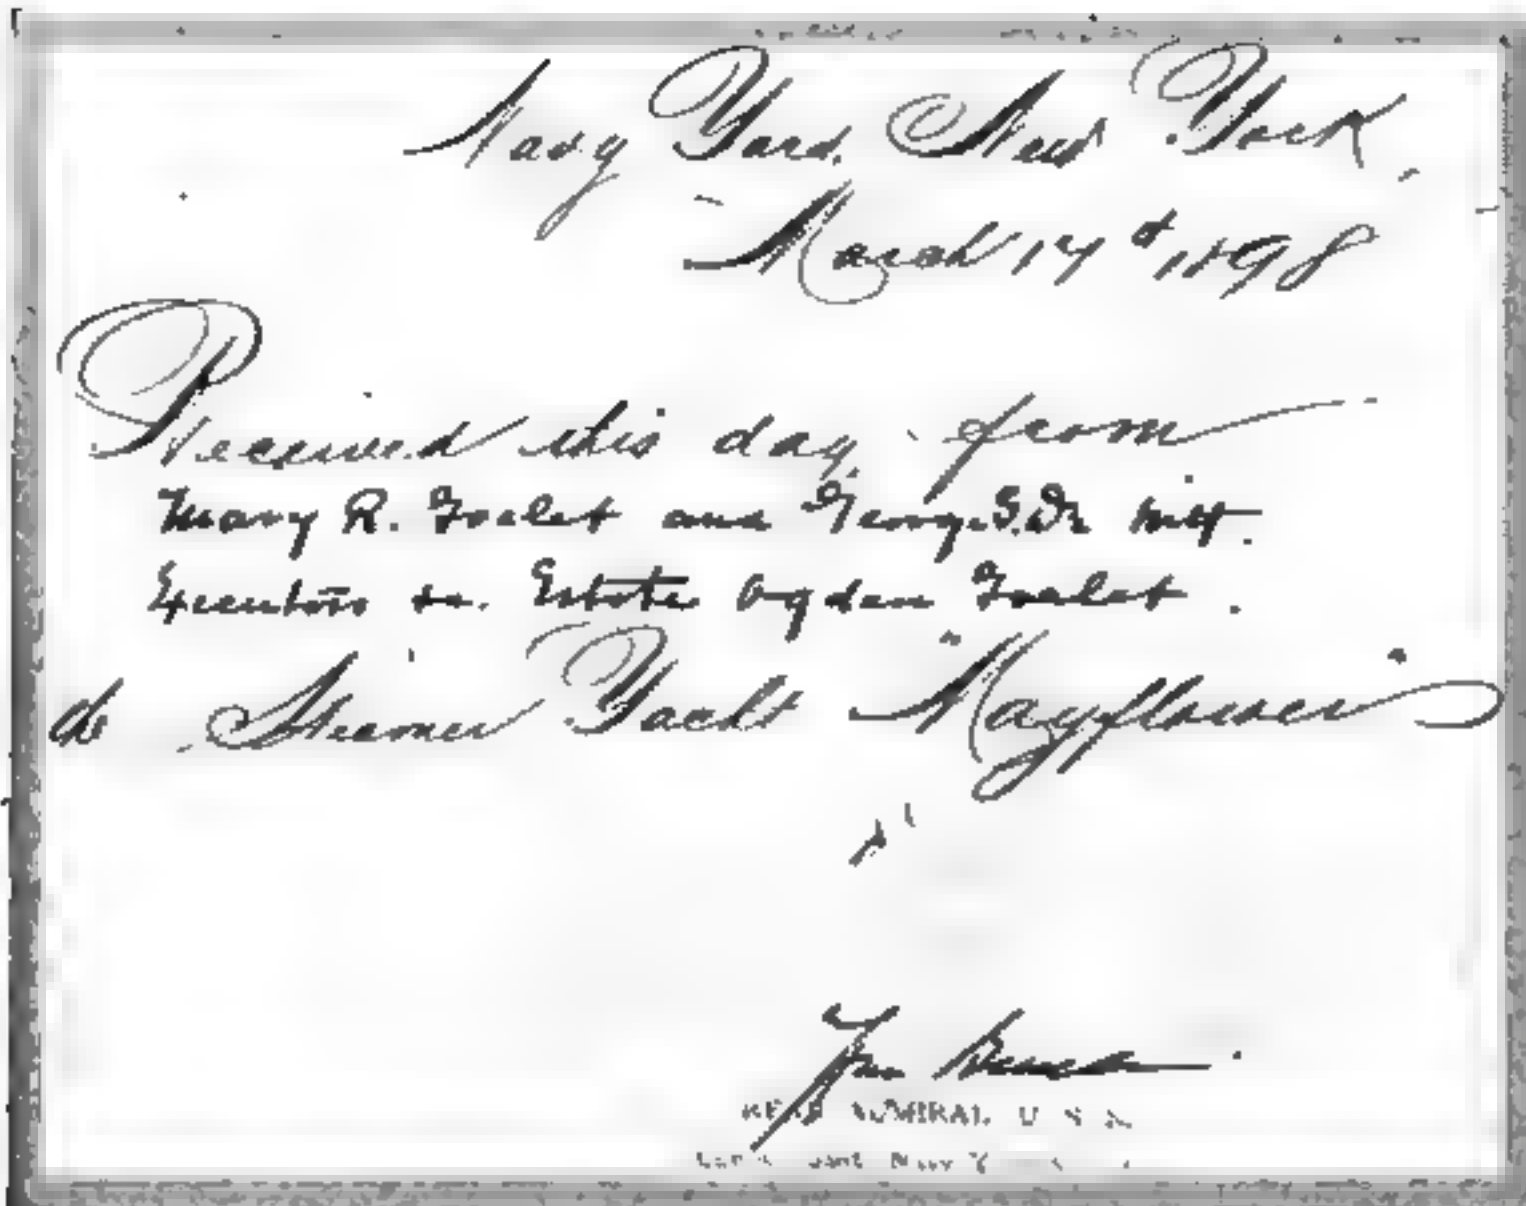 Navy Yard, New York,
March 17th 1898
Received this day from
Mary R. Goelet and George G. De Witt.
Executors &c. Estate Ogden Goelet.
the Steamer Yacht "Mayflower"
REAR ADMIRAL U S N
Navy Y